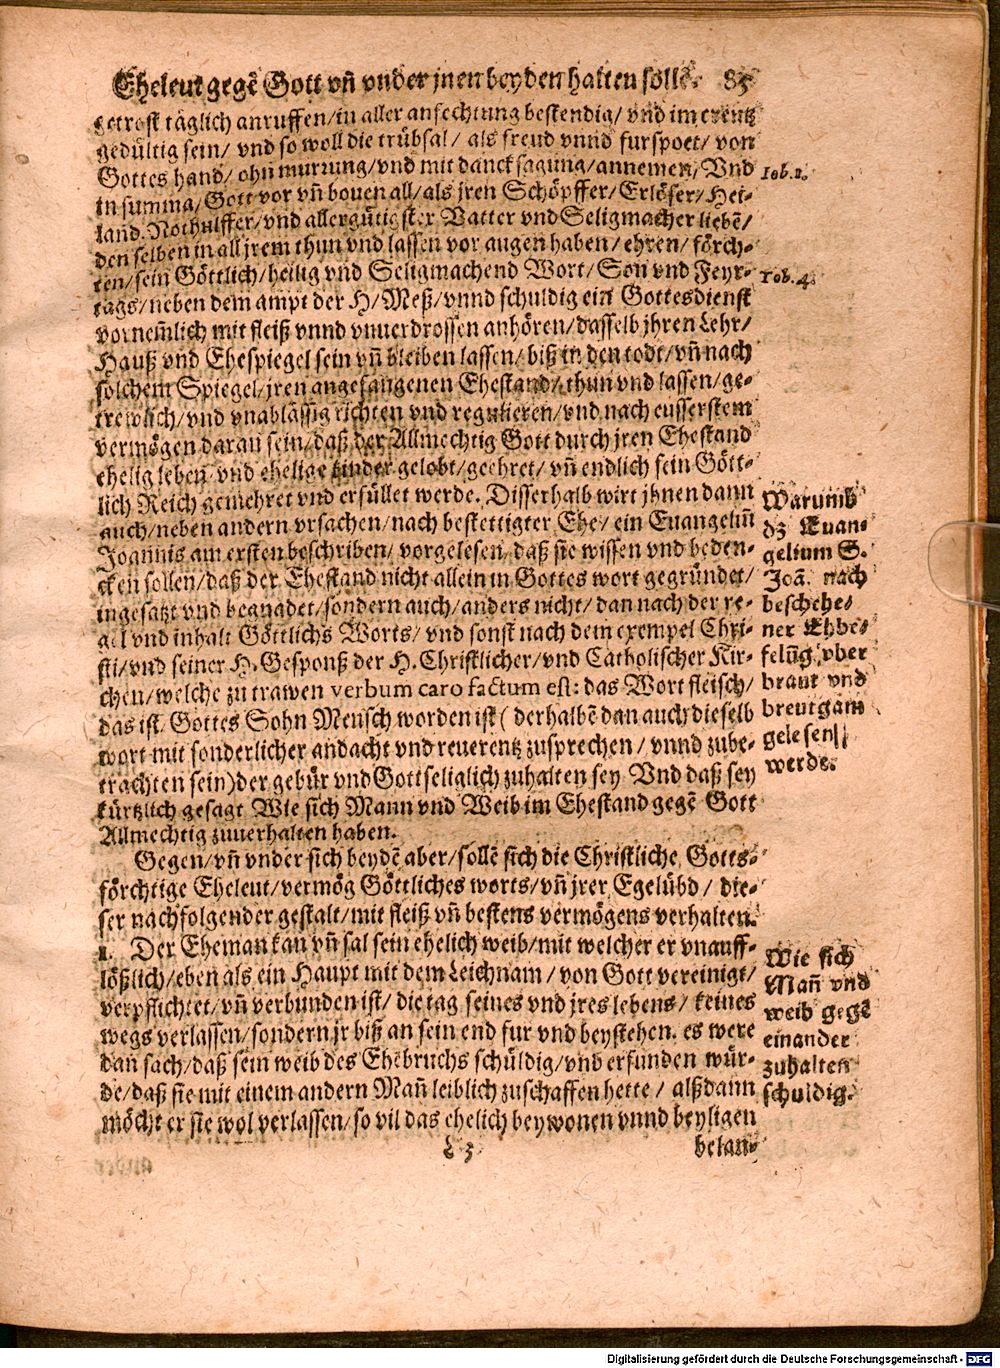 Eheleut gegẽ Gott vñ vnder jnen beyden halten sollẽ. 85
getrost täglich anruffen/in aller anfechtung bestendig/ vnd im creutz
gedültig sein/ vnd so woll die trübsal/ als freud vnnd furspoet/ von
Gottes hand/ ohn murrung/vnd mit danck sagung/annemen/ Vnd
Iob.1.
in summa/ Gott vor vñ bouen all/als jren Schöpffer/Erlöser/Hei-
land. Nothülffer/vnd allergütigster Vatter vnd Seligmacher liebẽ/
den selben in all jrem thun vnd lassen vor augen haben/ ehren/ förch-
ten/sein Göttlich/heilig vnd Seligmachend Wort/Son vnd Feyr-
Tob.4.
tags/neben dem ampt der H/Meß/vnnd schuldig ein Gottesdienst
vornem̃lich mit fleiß vnnd vnuerdrossen anhören/dasselb jhren Lehr/
Hauß vnd Ehespiegel sein vñ bleiben lassen/biß in den todt/vñ nach
solchem Spiegel/jren angefangenen Ehestand/thun vnd lassen/ge-
trewlich/vnd vnablässig richten vnd regulieren/vnd nach eusserstem
vermögen daran sein/daß der Allmechtig Gott durch jren Ehestand
ehelig leben/vnd ehelige kinder gelobt/geehret/ vñ endlich sein Gött-
lich Reich gemehret vnd erfüllet werde. Disserhalb wirt jhnen dann
auch/neben andern vrsachen/nach bestettigter Ehe/ ein Euangeliũ
Joannis am ersten beschriben/ vorgelesen/daß sie wissen vnd beden-
cken sollen/daß der Ehestand nicht allein in Gottes wort gegründet/
ingesatzt vnd begnadet/sondern auch/anders nicht/ dan nach der re-
gel vnd inhalt Göttlichs Worts/ vnd sonst nach dem exempel Chri-
sti/vnd seiner H. Gesponß der H. Christlicher/vnd Catholischer Kir-
chen/welche zu trawen verbum caro factum est: das Wort fleisch/
das ist/ Gottes Sohn Mensch worden ist ( derhalbẽ dan auch dieselb
wort mit sonderlicher andacht vnd reuerentz zusprechen/ vnnd zube-
trachten sein) der gebür vnd Gottseliglich zuhalten sey Vnd daß sey
kürtzlich gesagt Wie sich Mann vnd Weib im Ehestand gegẽ Gott
Allmechtig zuuerhalten haben.
Warumb
dz Euan-
gelium S.
Joã. nach
beschehe-
ner Ehbe-
felũg vber
braut vnd
breutgam
gelesen
werde.
Gegen/vñ vnder sich beydẽ aber/sollẽ sich die Christliche Gotts-
förchtige Eheleut/vermög Göttliches worts/vñ jrer Egelübd/ die-
ser nachfolgender gestalt/mit fleiß vñ bestens vermögens verhalten.
1. Der Eheman kan vñ sal sein ehelich weib/mit welcher er vnauff-
lößlich/eben als ein Haupt mit dem Leichnam/ von Gott vereinigt/
verpflichtet/vñ verbunden ist/ die tag seines vnd jres lebens/ keines
wegs verlassen/sondern jr biß an sein end fur vnd beystehen. es were
dan sach/daß sein weib des Ehebruchs schüldig/vnd erfunden wür-
de/daß sie mit einem andern Mañ leiblich zuschaffen hette/ alßdann
möcht er sie wol verlassen/so vil das ehelich beywonen vnnd beyligen
Wie sich
Mañ vnd
weib gegẽ
einander
zuhalten
schuldig.
L 5 belan-
Digitalisierung gefördert durch die Deutsche Forschungsgemeinschaft - DFG